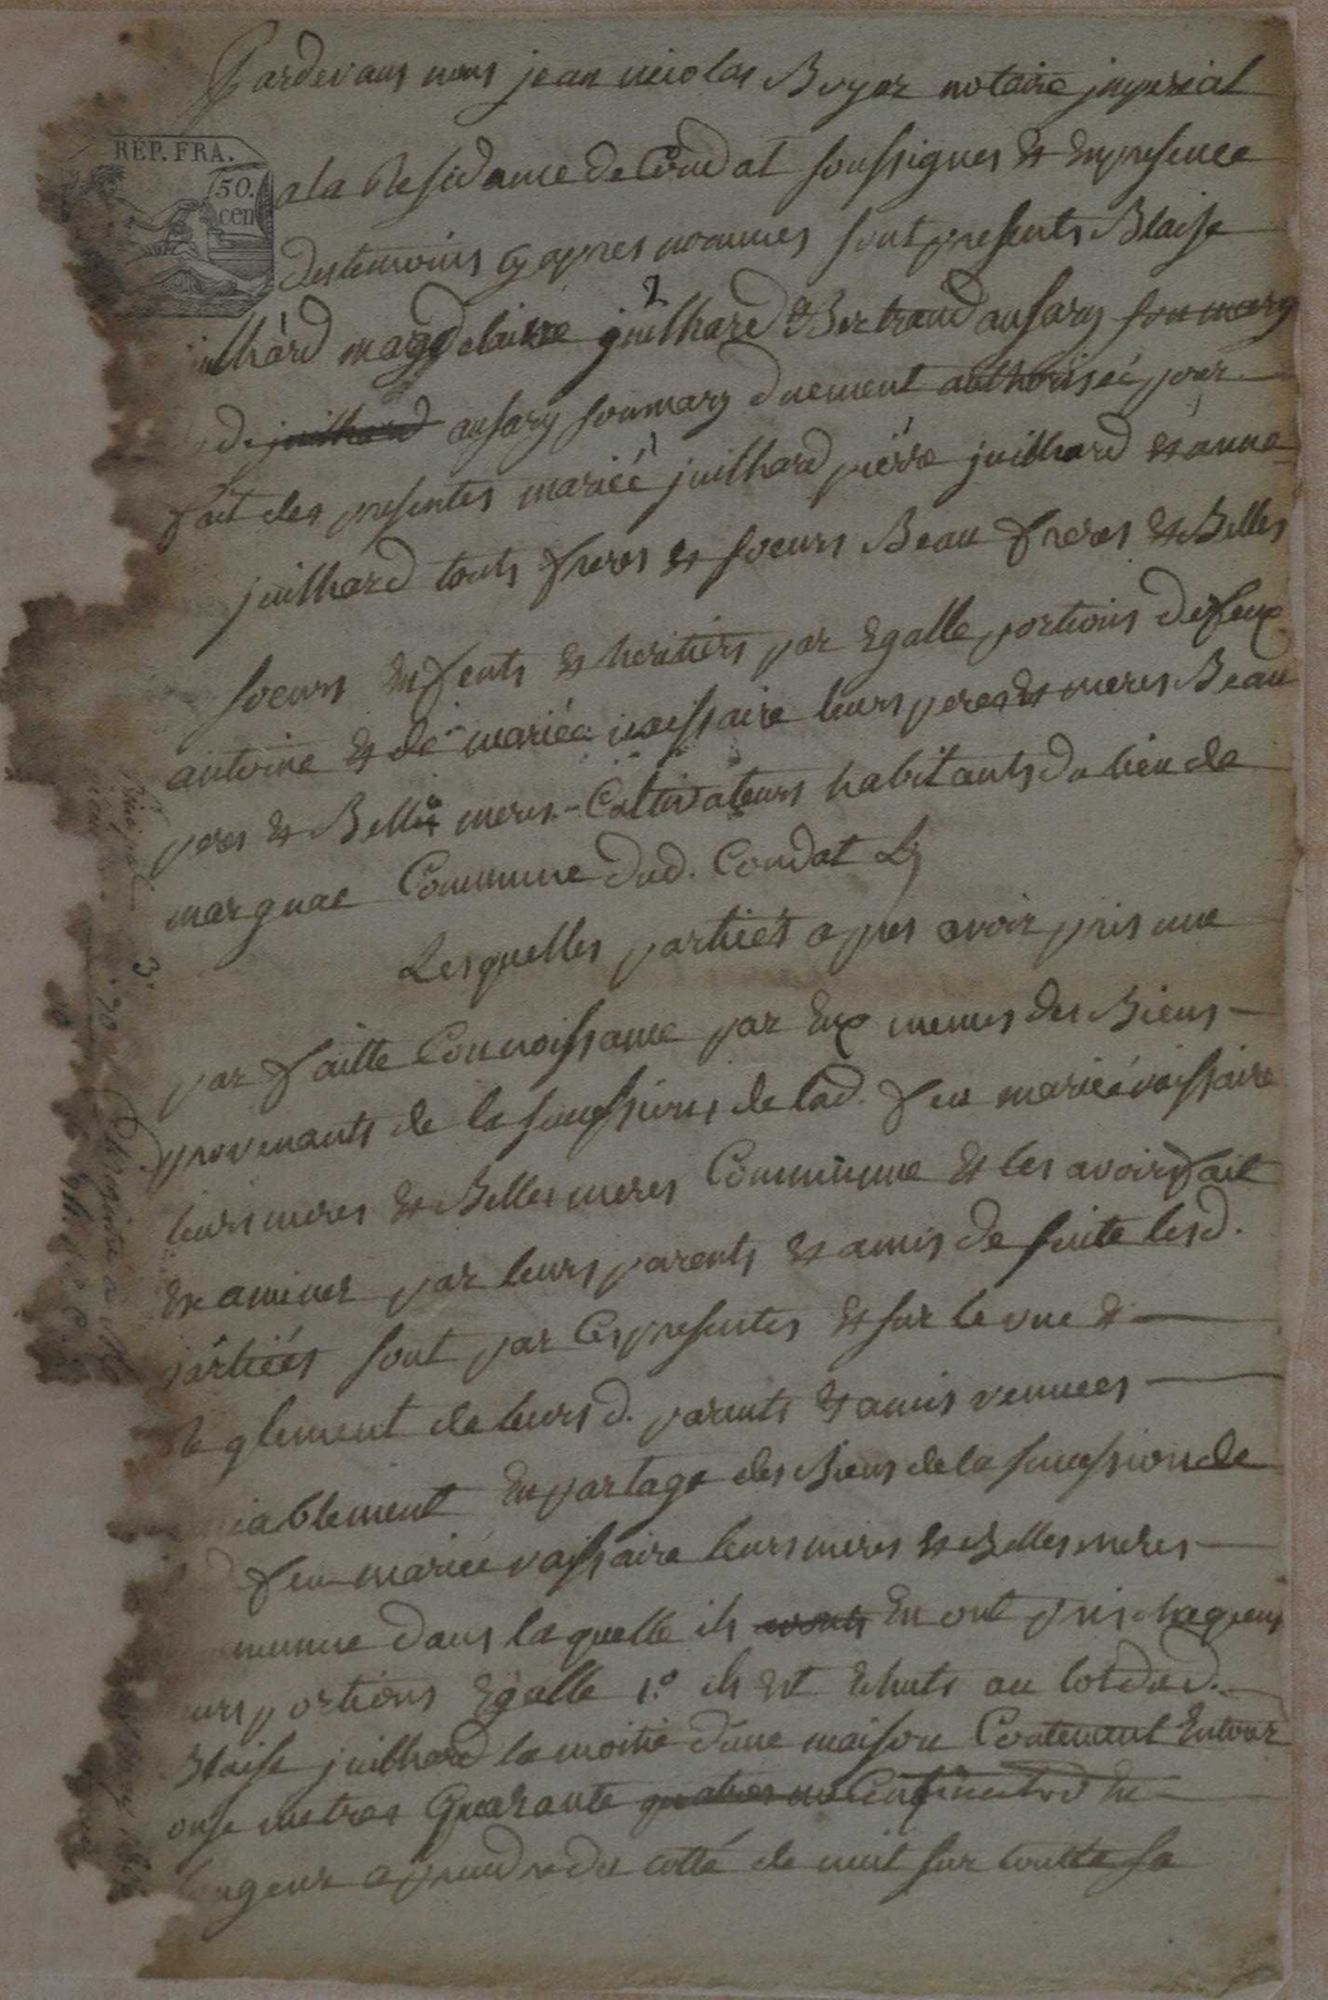 Pardevans nous jean nicolas Boyer notaire imperial
RÉP. FRA.
50.
cen
a la Residance de Condat soussignes & en presence
des temoins cy apres nommes sont presents Blaise
juilhard magdelaine juilhard & Bertrand ansary son mary
2
de juilhard ansary son mary duement authorisée pour
fait des presentes mariée juilhard pierre juilhard & anne
juilhard touts freres & soeurs Beau freres & Belles
soeurs enfents & heritiers par Egalle portions de feux
antoine & de mariée vaissaire leurs peres & meres Beau
peres & Belles meres - Cultivateurs habitants du lieu de
marguac Commune dud. Condat
Lesquelles partiées apres avoir pris une
parfaitte Connoissance par Eux memes des Biens
provenants de la sucession de lad. feu mariée vaissaire
leurs meres & Belles meres Commune & les avoir fait
Examiner par leurs parents & amis de suite lesd.
partiées sont par Ces presentes & sur le vue &
Reglement de leursd. parents & amis vennues
amiablement En partage des Biens de la sucession de
feu mariée vaissaire leurs meres & Belles meres
commune dans laquelle ils En ont pris chaquens
leurs portions Egalle 1.º ils est Echuts au lot dud.
Blaise juilhard la moitié d'une maison Contenant Entour
onse metres Quarante quatres Centimetres En
longeur a prendre du cotté de nuit sur toutte sa